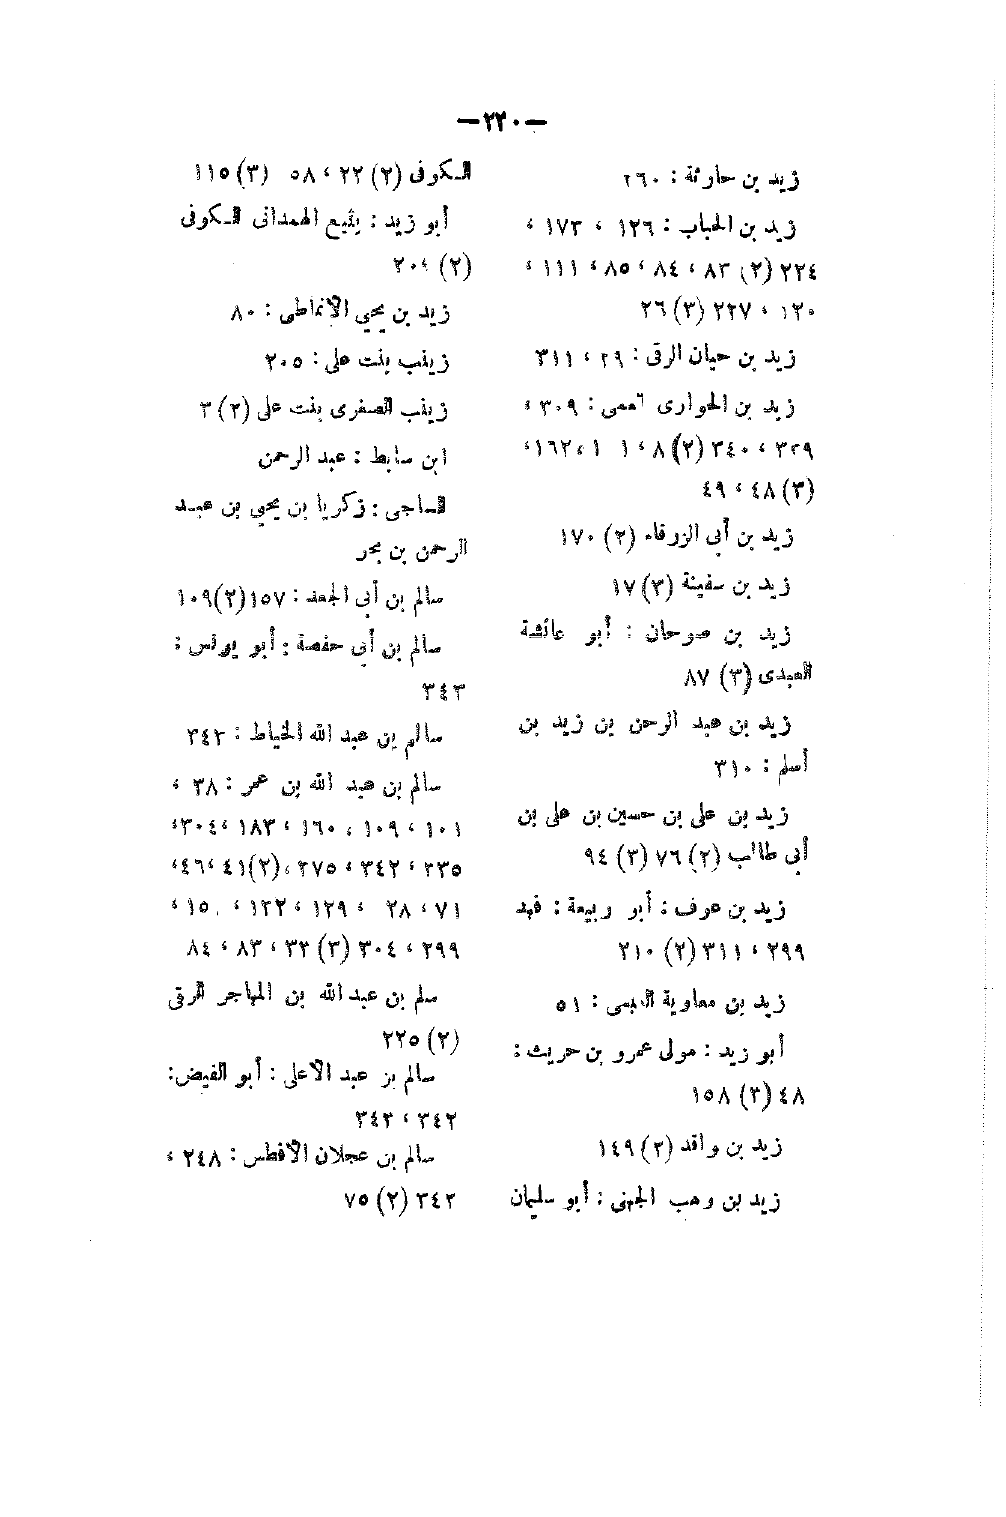 —٢٢٠—
زيد بن حارثة : ٢٦٠
زيد بن الحباب : ١٢٦ ، ١٧٣ ،
٢٢٤ (٢) ٨٣ ، ٨٤ ، ٨٥ ، ١١١ ،
١٢٠ ، ٢٢٧ (٣) ٢٦
زيد بن حيان الرقى : ٢٩ ، ٣١١
زيد بن الحوارى العمى : ٣٠٩ ،
٣٢٩ ، ٣٤٠ (٢) ٨ ، ١٦٢ ،
(٣) ٤٨ ، ٤٩
زيد بن أبى الزرقاء (٢) ١٧٠
زيد بن سفينة (٣) ١٧
زيد بن صوحان : أبو عائشة
العبدى (٣) ٨٧
زيد بن عبد الرحمن بن زيد بن
أسلم : ٣١٠
زيد بن على بن حسين بن على بن
أبى طالب (٢) ٧٦ (٣) ٩٤
زيد بن عوف : أبو ربيعة : فهد
٢٩٩ ، ٣١١ (٢) ٢١٠
زيد بن معاوية العبسى : ٥١
أبو زيد : مولى عمرو بن حريث :
٤٨ (٣) ١٥٨
زيد بن واقد (٢) ١٤٩
زيد بن وهب الجهنى : أبو سليمان
الكوفى (٢) ٢٢ ، ٥٨ (٣) ١١٥
أبو زيد : يثيع الهمدانى الكوفى
(٢) ٢٠٩
زيد بن يحيي الأنماطى : ٨٠
زينب بنت على : ٢٠٥
زينب الصغرى بنت على (٢) ٣
ابن سابط : عبد الرحمن
الساجى : زكريا بن يحيي بن عبد
الرحمن بن بحر
سالم بن أبى الجعد : ١٥٧ (٢) ١٠٩
سالم بن أبى حفصة : أبو يونس :
٣٤٣
سالم بن عبد الله الخياط : ٣٤٢
سالم بن عبد الله بن عمر : ٣٨ ،
١٠١ ، ١٠٩ ، ١٦٠ ، ١٨٣ ، ٣٠٤ ،
٢٣٥ ، ٣٤٢ ، ٢٧٥ ، (٢) ٤١ ، ٤٦ ،
٧١ ، ٢٨ ، ١٢٩ ، ١٢٢ ، ١٥ ،
٢٩٩ ، ٣٠٤ (٣) ٢٢ ، ٨٣ ، ٨٤
سلم بن عبد الله بن المهاجر الرقى
(٢) ٢٢٥
سالم بن عبد الأعلى : أبو الفيض :
٣٤٢ ، ٣٤٣
سالم بن عجلان الأفطس : ٢٤٨ ،
٣٤٢ (٢) ٧٥